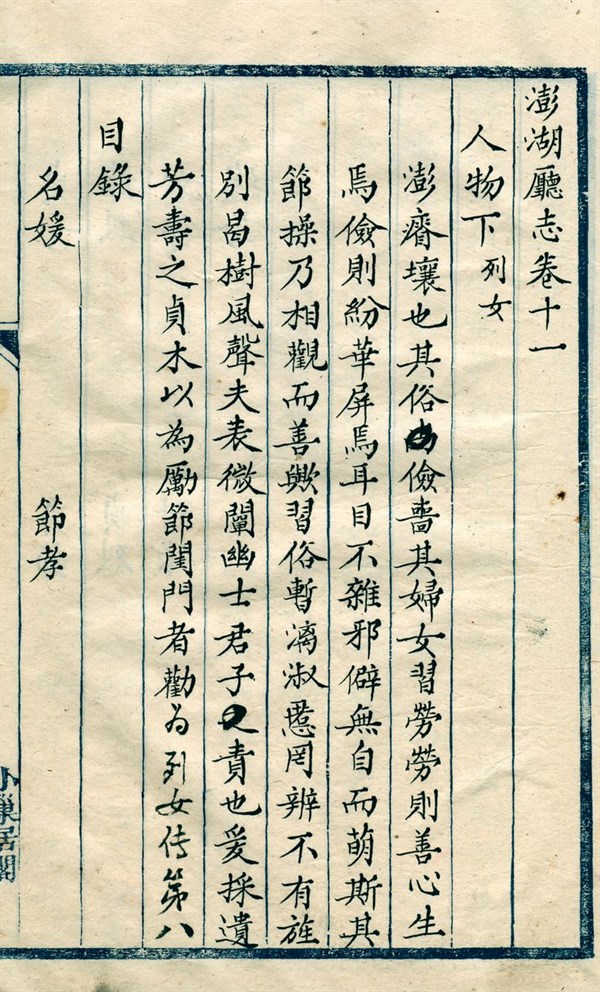 澎湖廳志卷十一
人物下 列女
澎瘠壤也其俗儉嗇其婦女習勞勞則善心生
焉儉則紛華屏焉耳目不雜邪僻無自而萌斯其
節操乃相觀而善歟習俗暫漓淑慝罔辨不有旌
別曷樹風聲夫表微闡幽士君子之責也爰採遺
芳壽之貞木以為勵節閨門者勸為列女传第八
目錄
名媛 節孝
小巢居閣